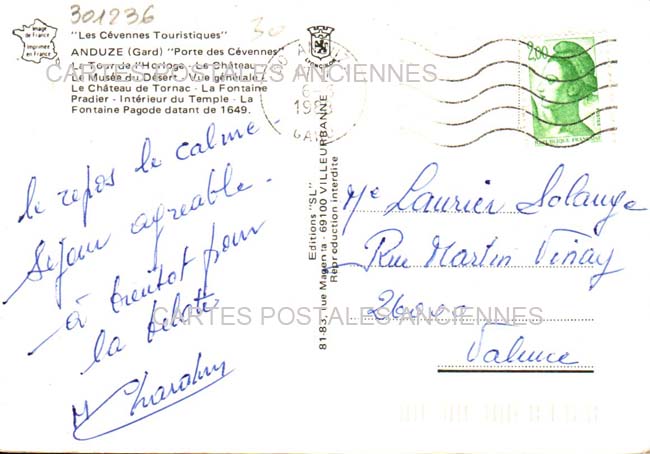 301236
30
Image
de France
imprimée
en France
"Les Cévennes Touristiques"
ANDUZE (Gard) "Porte des Cévennes"
La Tour de l'Horloge - Le Château
Le Musée du Désert - Vue générale
Le Château de Tornac - La Fontaine
Pradier - Intérieur du Temple - La
Fontaine Pagode datant de 1649.
CARTES POSTALES ANCIENNES
2,00
REPUBLIQUE FRANCAISE
le repos le calme -
Séjour agréable -
à bientôt pour
la
Editions "SL"
81-83, rue Magenta - 69100 VILLEURBANNE
Reproduction interdite
Me Laurier Solange
Rue Martin Vinay
26000
Valence
CARTES POSTALES ANCIENNES